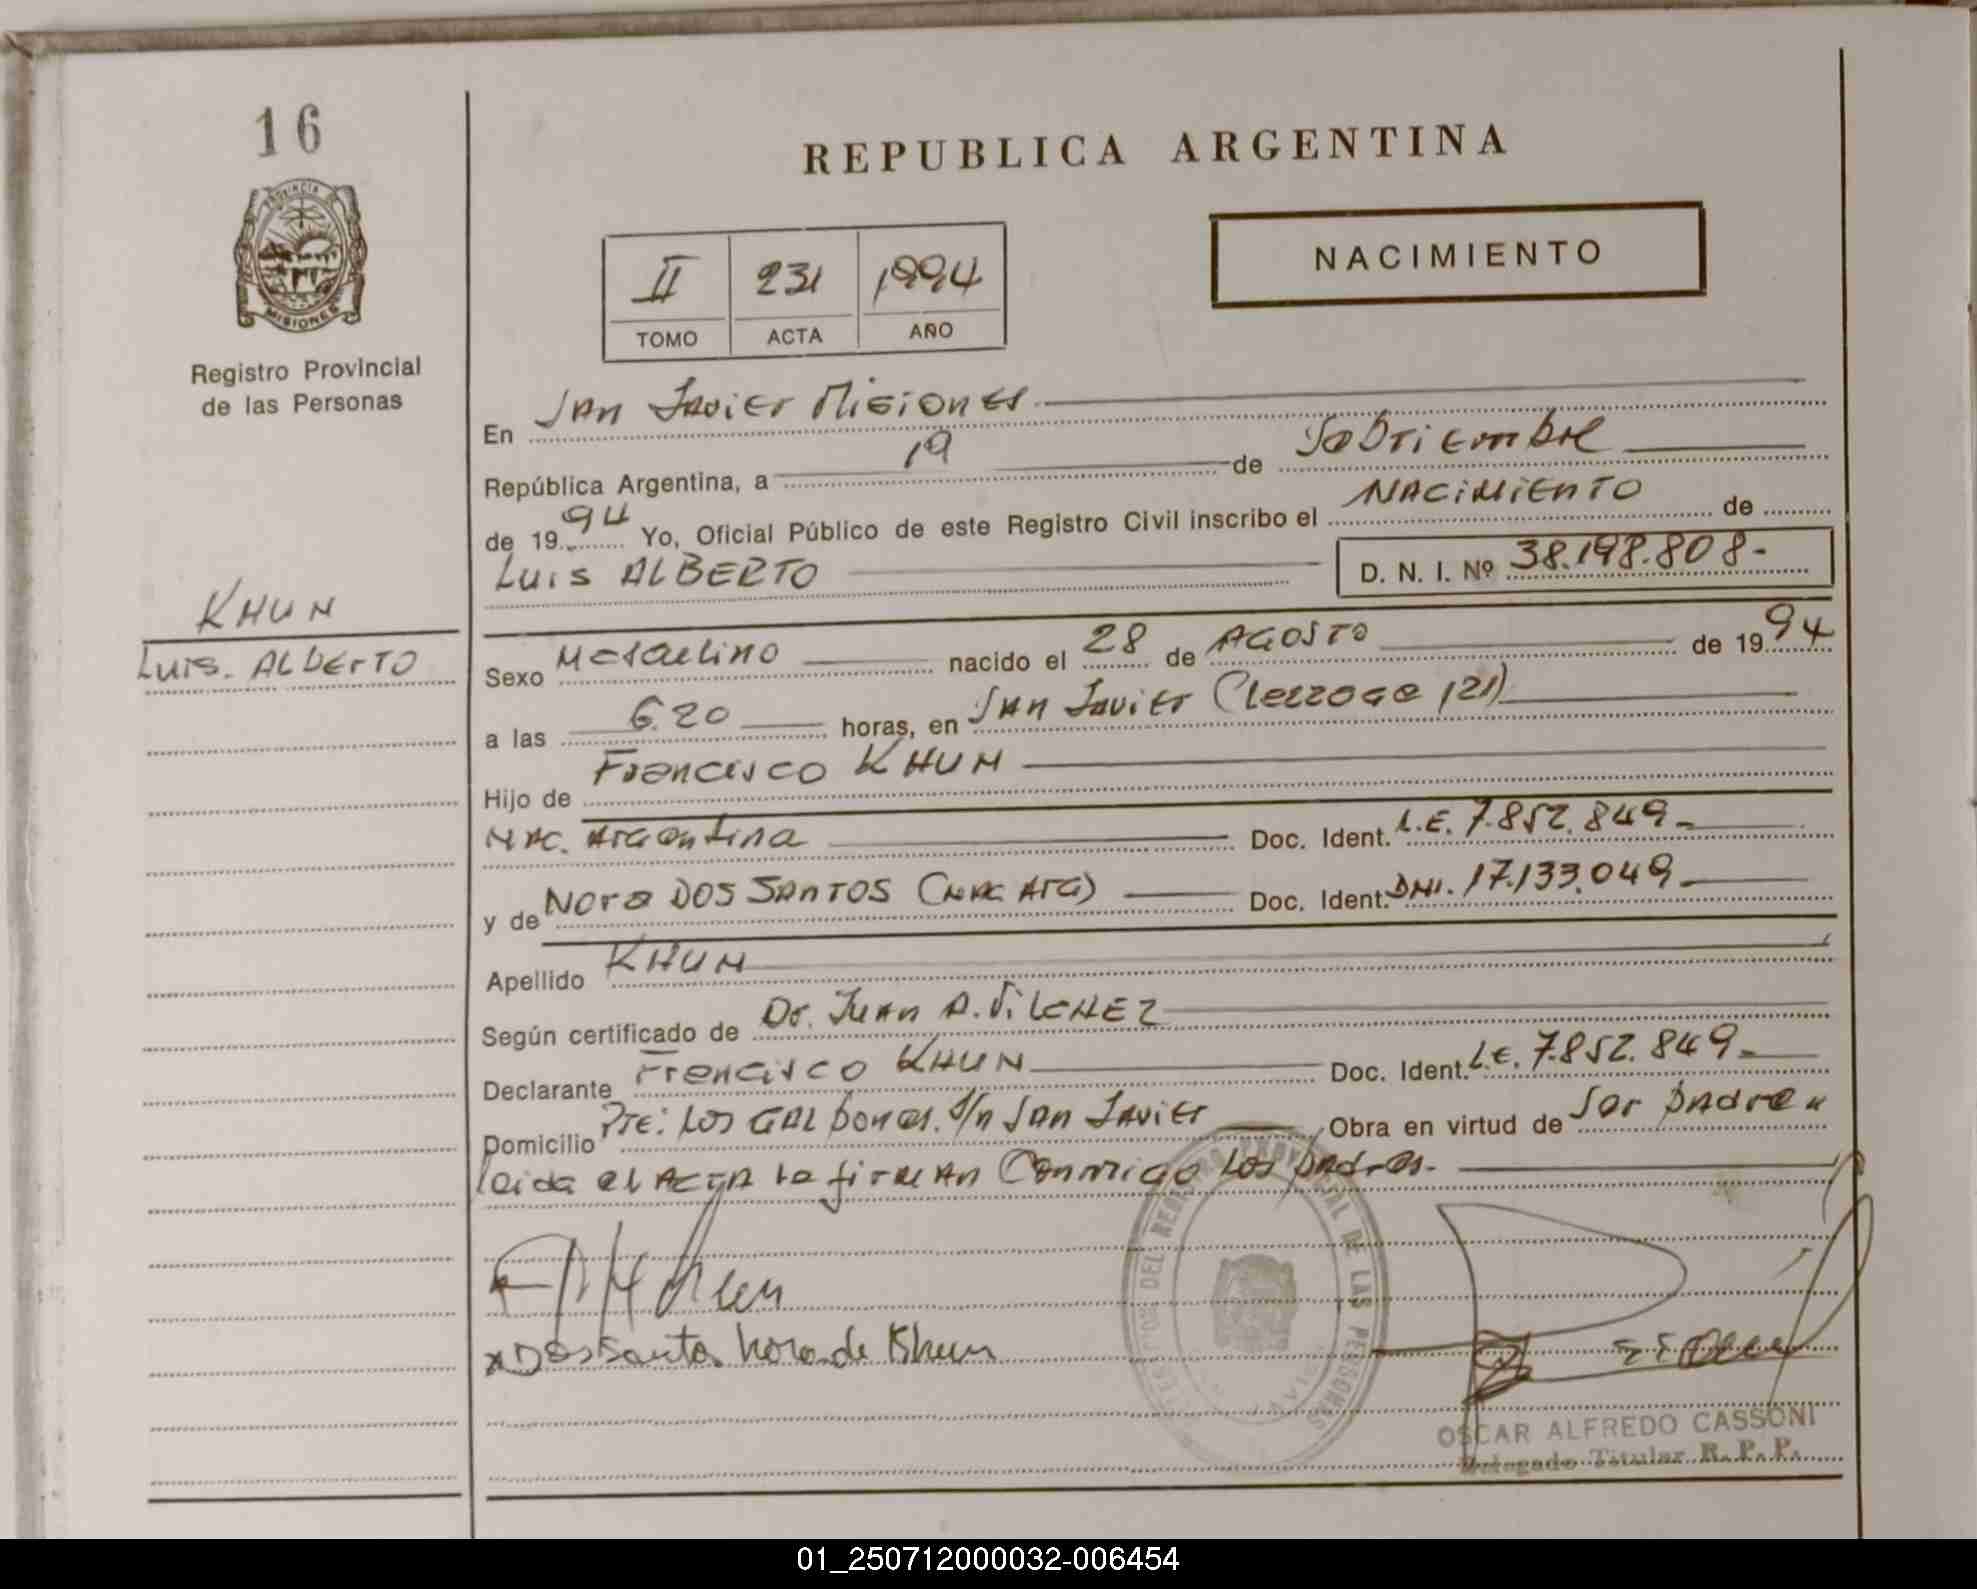 16
PROVINCIA DE
MISIONES
Registro Provincial
de las Personas
KHUN
Luis. ALberTO
REPUBLICA ARGENTINA
NACIMIENTO
II 231 1994
TOMO ACTA AÑO
En San Javier Misiones
República Argentina, a 19 de Sebtiembre
de 1994 Yo, Oficial Público de este Registro Civil inscribo el NACIMIENTO de
Luis ALBERTO D. N. I. Nº 38.198.808-
Sexo Masculino nacido el 28 de AGOSTO de 1994
a las 6.20 horas, en San Javier (121)
Hijo de Francisco KHUN
NAC. Argentina Doc. Ident. L.E. 7.852.849-
y de Nora DOS SANTOS (NAC ARG) Doc. Ident. DNI. 17.133.049
Apellido KHUN
Según certificado de Dr. Juan A. VILCHEZ
Declarante Francisco KHUN Doc. Ident. L.E. 7.852.849-
Domicilio Pje: Los GALpones. S/n San Javier Obra en virtud de Ser padre
leida el ACTA la firman Conmigo Los padres.-
x Dos Santos Nora de Khun
OSCAR ALFREDO CASSONI
Delegado Titular R. P. P.
01_250712000032-006454